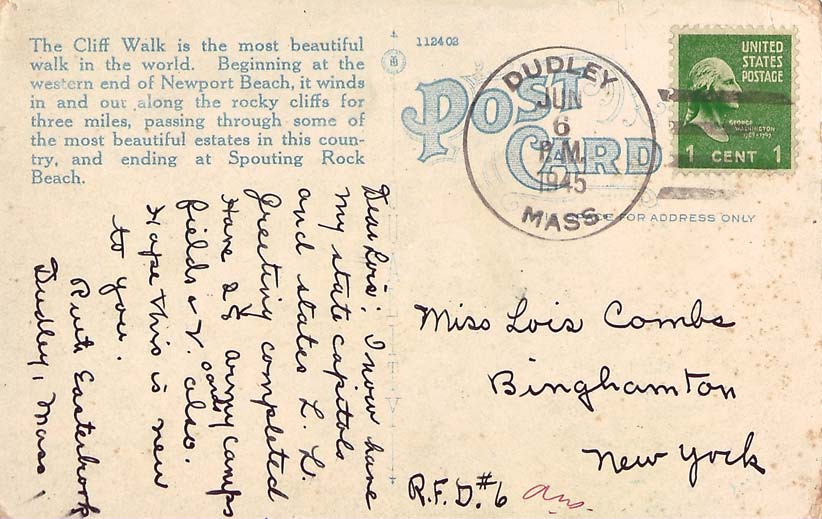 The Cliff Walk is the most beautiful
walk in the world. Beginning at the
western end of Newport Beach, it winds
in and out along the rocky cliffs for
three miles, passing through some of
the most beautiful estates in this coun-
try, and ending at Spouting Rock
Beach.
112402
POST
CARD
DUDLEY
JUN
6
P.M.
1945
MASS
UNITED
STATES
POSTAGE
GEORGE
WASHINGTON
1 CENT 1
FOR ADDRESS ONLY
Dear Lois: I now have
my state capitols
and states L. L.
Greeting completed
Have 28 army camps
cards
fields & V. also.
Hope this is new
to you.
Ruth Easterbrook
Dudley, Mass.
Miss Lois Combs
Binghamton
New York
R.F.D. #6
ans.